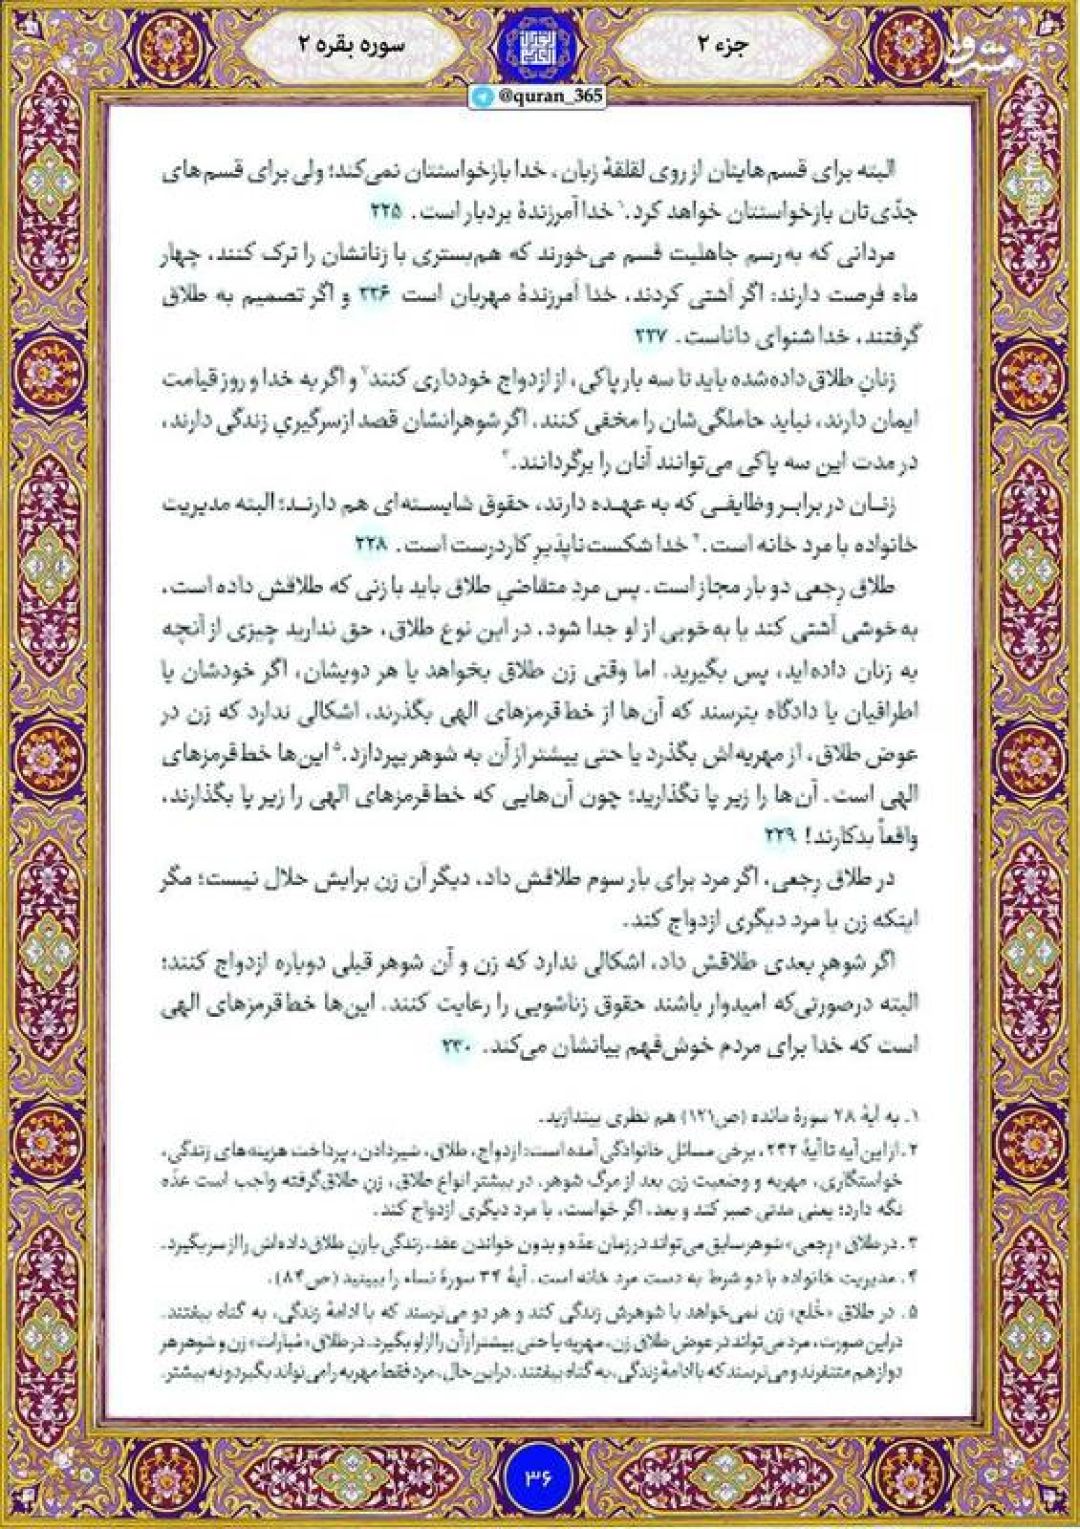 جزء ۲
سوره بقره ۲
@quran_365
البته برای قسم‌هایتان از روی لقلقهٔ زبان، خدا بازخواستتان نمی‌کند؛ ولی برای قسم‌های
جدّی‌تان بازخواستتان خواهد کرد.۱ خدا آمرزندهٔ بردبار است. ۲۲۵
مردانی که به‌رسم جاهلیت قسم می‌خورند که هم‌بستری با زنانشان را ترک کنند، چهار
ماه فرصت دارند: اگر آشتی کردند، خدا آمرزندهٔ مهربان است ۲۲۶ و اگر تصمیم به طلاق
گرفتند، خدا شنوای داناست. ۲۲۷
زنانِ طلاق داده‌شده باید تا سه بار پاکی، از ازدواج خودداری کنند۲ و اگر به خدا و روز قیامت
ایمان دارند، نباید حاملگی‌شان را مخفی کنند. اگر شوهرانشان قصد ازسرگیریِ زندگی دارند،
در مدت این سه پاکی می‌توانند آنان را برگردانند.۳
زنـان در برابـر وظایفـی که به عهـده دارند، حقوق شایسـته‌ای هم دارنـد؛ البته مدیریت
خانواده با مرد خانه است.۴ خدا شکست‌ناپذیرِ کاردرست است. ۲۲۸
طلاق رِجعی دو بار مجاز است. پس مردِ متقاضیِ طلاق باید با زنی که طلاقش داده است،
به‌خوشی آشتی کند یا به‌خوبی از او جدا شود. در این نوع طلاق، حق ندارید چیزی از آنچه
به زنان داده‌اید، پس بگیرید. اما وقتی زن طلاق بخواهد یا هر دویشان، اگر خودشان یا
اطرافیان یا دادگاه بترسند که آن‌ها از خط‌قرمزهای الهی بگذرند، اشکالی ندارد که زن در
عوض طلاق، از مهریه‌اش بگذرد یا حتی بیشتر از آن به شوهر بپردازد.۵ این‌ها خط‌قرمزهای
الهی است. آن‌ها را زیر پا نگذارید؛ چون آن‌هایی که خط‌قرمزهای الهی را زیر پا بگذارند،
واقعاً بدکارند! ۲۲۹
در طلاق رِجعی، اگر مرد برای بار سوم طلاقش داد، دیگر آن زن برایش حلال نیست؛ مگر
اینکه زن با مرد دیگری ازدواج کند.
اگر شوهرِ بعدی طلاقش داد، اشکالی ندارد که زن و آن شوهر قبلی دوباره ازدواج کنند؛
البته درصورتی‌که امیدوار باشند حقوق زناشویی را رعایت کنند. این‌ها خط‌قرمزهای الهی
است که خدا برای مردم خوش‌فهم بیانشان می‌کند. ۲۳۰
۱. به آیهٔ ۲۸ سورهٔ مائده (ص۱۲۱) هم نظری بیندازید.
۲. از این آیه تا آیهٔ ۲۴۲، برخی مسائل خانوادگی آمده است: ازدواج، طلاق، شیردادن، پرداخت هزینه‌های زندگی،
خواستگاری، مهریه و وضعیت زن بعد از مرگ شوهر. در بیشتر انواع طلاق، زنِ طلاق‌گرفته واجب است عدّه
نگه دارد؛ یعنی مدتی صبر کند و بعد، اگر خواست، با مرد دیگری ازدواج کند.
۳. در طلاق «رِجعی» شوهر سابق می‌تواند در زمان عدّه و بدون خواندن عقد، زندگی با زنِ طلاق‌داده‌اش را از سر بگیرد.
۴. مدیریت خانواده با دو شرط به دست مرد خانه است. آیهٔ ۳۴ سورهٔ نساء را ببینید (ص۸۴).
۵. در طلاق «خُلع» زن نمی‌خواهد با شوهرش زندگی کند و هر دو می‌ترسند که با ادامهٔ زندگی، به گناه بیفتند.
دراین صورت، مرد می‌تواند در عوض طلاق زن، مهریه یا حتی بیشتر از آن را از او بگیرد. در طلاق «مُبارات» زن و شوهر هر
دو از هم متنفرند و می‌ترسند که با ادامهٔ زندگی، به گناه بیفتند. دراین حال، مرد فقط مهریه را می‌تواند بگیرد و نه بیشتر.
۳۶